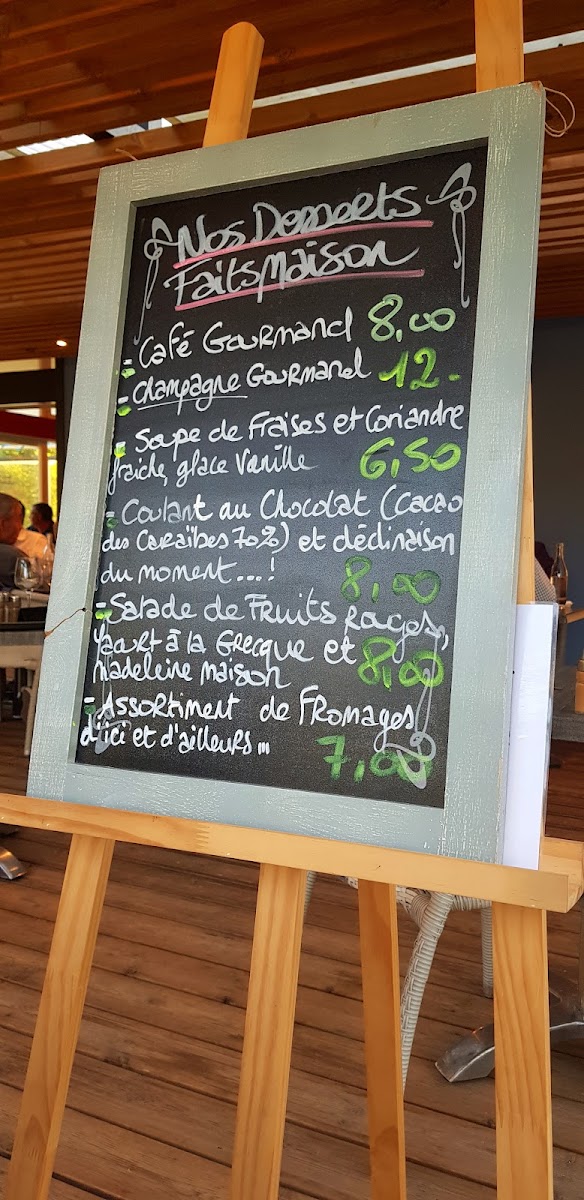 Nos Desserts
Faits Maison
- Café Gourmand 8,00
- Champagne Gourmand 12.-
- Soupe de Fraises et Coriandre
fraiche, glace Vanille 6,50
- Coulant au Chocolat (cacao
des Caraïbes 70%) et déclinaison
du moment...! 8,00
- Salade de Fruits Rouges,
Yaourt à la Grecque et 8,00
madeleine maison
- Assortiment de Fromages
d'ici et d'ailleurs... 7,00